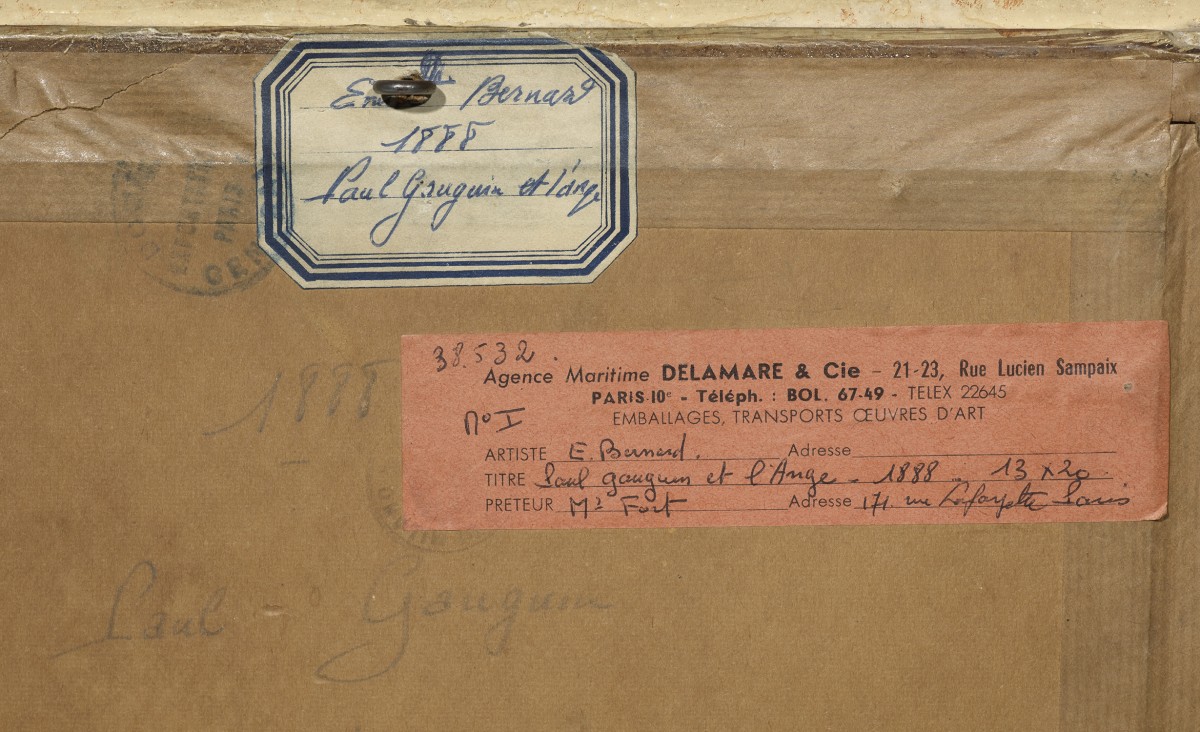 Bernard
1888
Paul Gauguin et l'ange
PARIS
38.532.
Agence Maritime DELAMARE & Cie – 21-23, Rue Lucien Sampaix
PARIS-10e - Téléph. : BOL. 67-49 - TELEX 22645
EMBALLAGES, TRANSPORTS ŒUVRES D'ART
1888
No I
ARTISTE E. Bernard. Adresse
TITRE Paul gauguin et l'Ange - 1888 - 13 x 20
PRETEUR Mr Fort Adresse 171. rue Lafayette Paris
Paul - Gauguin